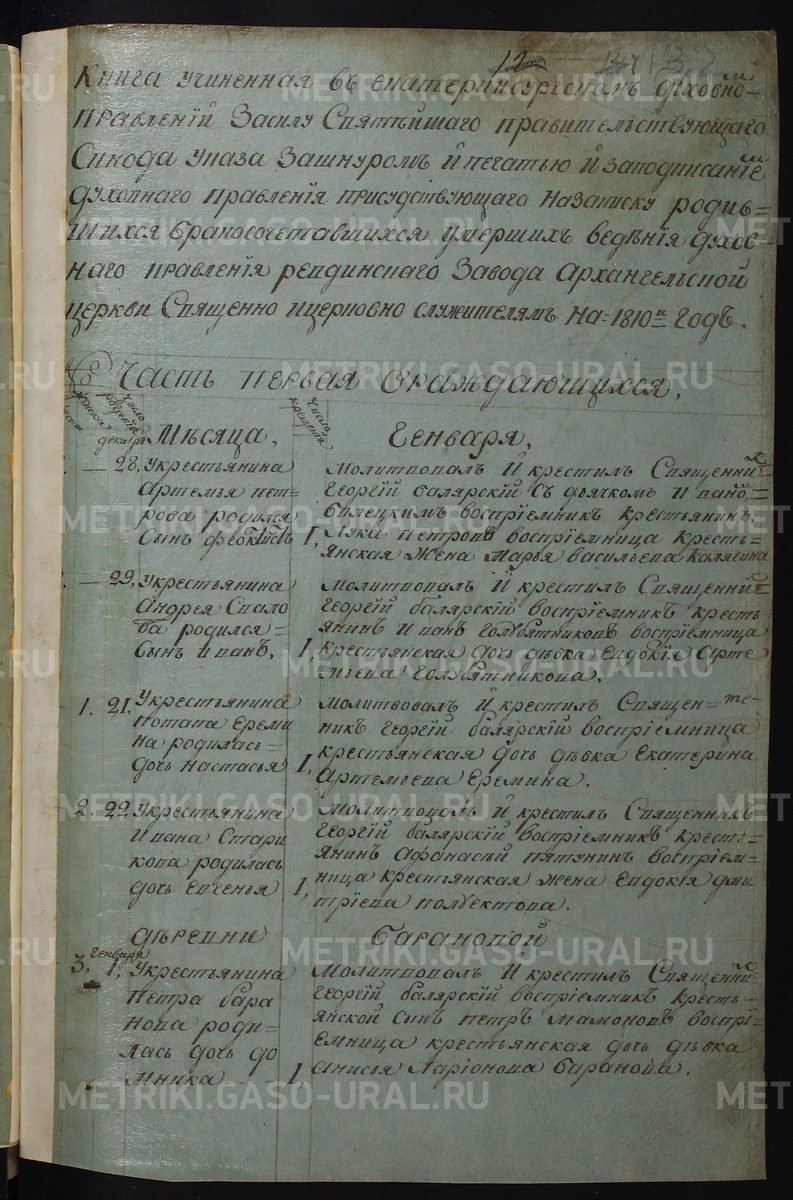 12
Книга учиненная въ екатеринбургскомъ духовномъ
правленїй Засилу Святѣйшаго правительствующаго
Синода указа Зашнуромъ й печатью й заподписанїемъ
духовнаго правленїя присудствующаго Назаписку родив=
шихся бракосочетавшихся умершихъ ведѣнїя духов
наго правленїя ревдинскаго Завода Архангельской
церкви Священно ицерковно служителямъ На=1810й Годъ.
Часть первая Ораждающихся.
число рожденїя
число крещенїя
декабря Мѣсяца, Генваря,
28, Укрестьянина
Артемья пет-
рова родился
Сынъ феоктистъ
1,
Молитвовалъ Й крестилъ Священникъ
Георгїй балярскїй съ дьячкомъ Иваномъ
бѣлецкимъ воспрїемникъ крестьянинъ
Лука петровъ воспрїемница кресть=
янская жена Марья васильева калягина
29, Укрестьянина
Андрея Спало
ва родился=
Сынъ иванъ,
1,
Молитвовалъ Й крестилъ Священникъ
Георгїй балярскїй воспрїемникъ кресть
янинъ иванъ голубятниковъ воспрїемница
крестьянская дочь дѣвка Евдокїя Арте
мьева Голубятникова.
1. 21. Укрестьянина
потапа Ереми
на родилась=
дочь настасья
1,
Молитвовалъ й крестилъ Священ=
никъ георгїй балярскїй воспрїемница
крестьянская дочь дѣвка Екатерина
Артемьева Еремина.
2. 22 Укрестьянина
ивана Стари
кова родилась
дочь евгенья
1,
Молитвовалъ й крестилъ Священникъ
Георгїй балярскїй воспрїемникъ кресть=
янинъ Афанасей пятунинъ воспрїем=
ница крестьянская жена евдокїя дми
трїева полуектова.
дѣревни Барановой
Генваря
3, 1, Укрестьянина
Петра бара
нова роди-
лась дочь до
мника
1,
Молитвовалъ Й крестилъ Священникъ
Георгїй балярскїй воспрїемникъ кресть-
янской сынъ петръ мамоновъ воспрї=
емница крестьянская дочь дѣвка
анисья Ларїонова баранова.
METRIKI.GASO-URAL.RU